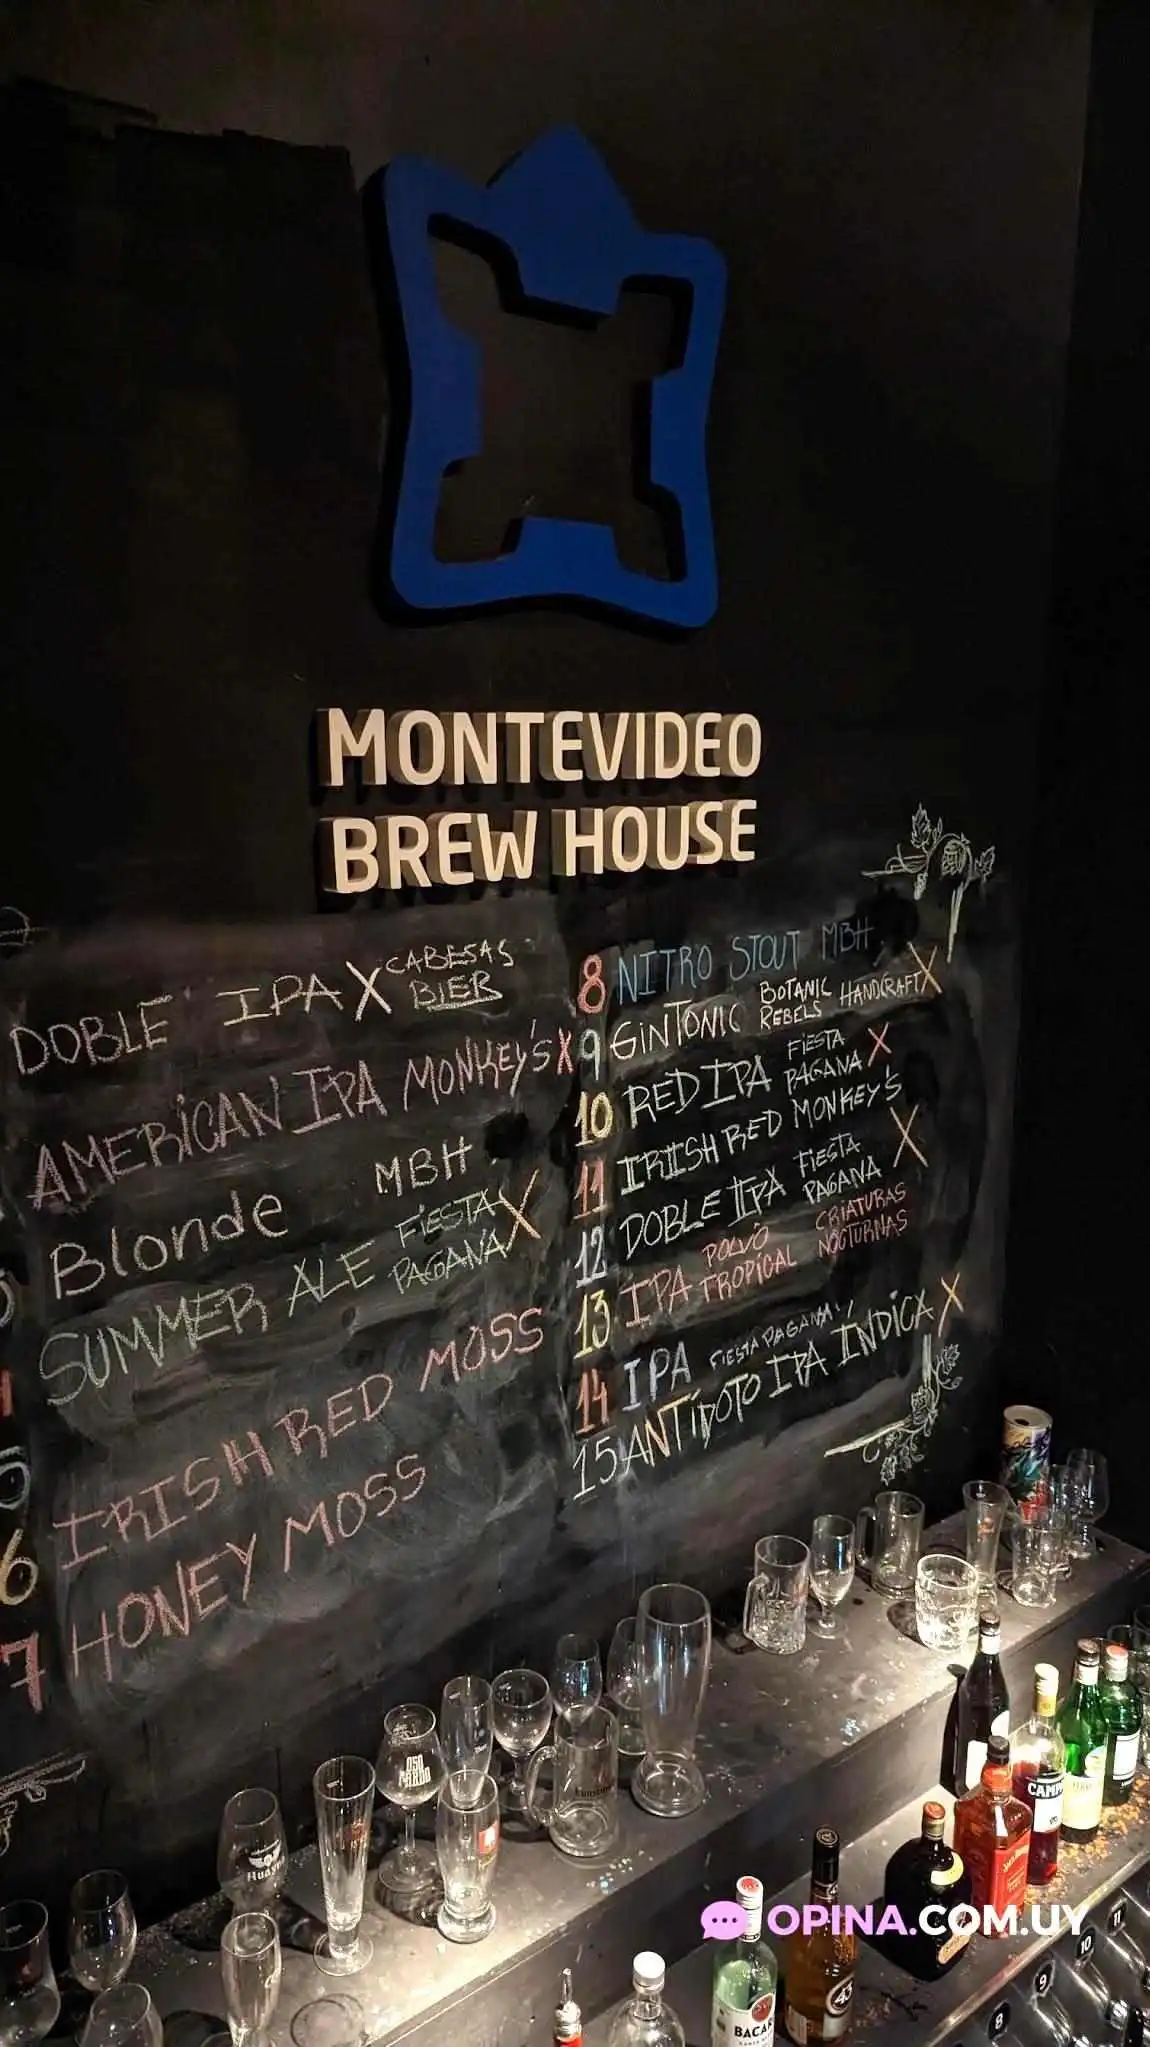 MONTEVIDEO
BREW HOUSE
DOBLE IPA X CABESAS BIER
AMERICAN IPA MONKEY'S X
Blonde MBH
SUMMER ALE FIESTA PAGANA X
5 IRISH RED MOSS
6 HONEY MOSS
7
8 NITRO STOUT MBH
9 GINTONIC BOTANIC REBELS HANDCRAFT X
10 RED IPA FIESTA PAGANA X
11 IRISH RED MONKEY'S
12 DOBLE IPA FIESTA PAGANA X
13 IPA POLVO TROPICAL CRIATURAS NOCTURNAS
14 IPA FIESTA PAGANA
15 ANTÍDOTO IPA ÍNDICA X
OSO PARDO
CAMP
BACAR
43
OPINA.COM.UY
11
10
9
8